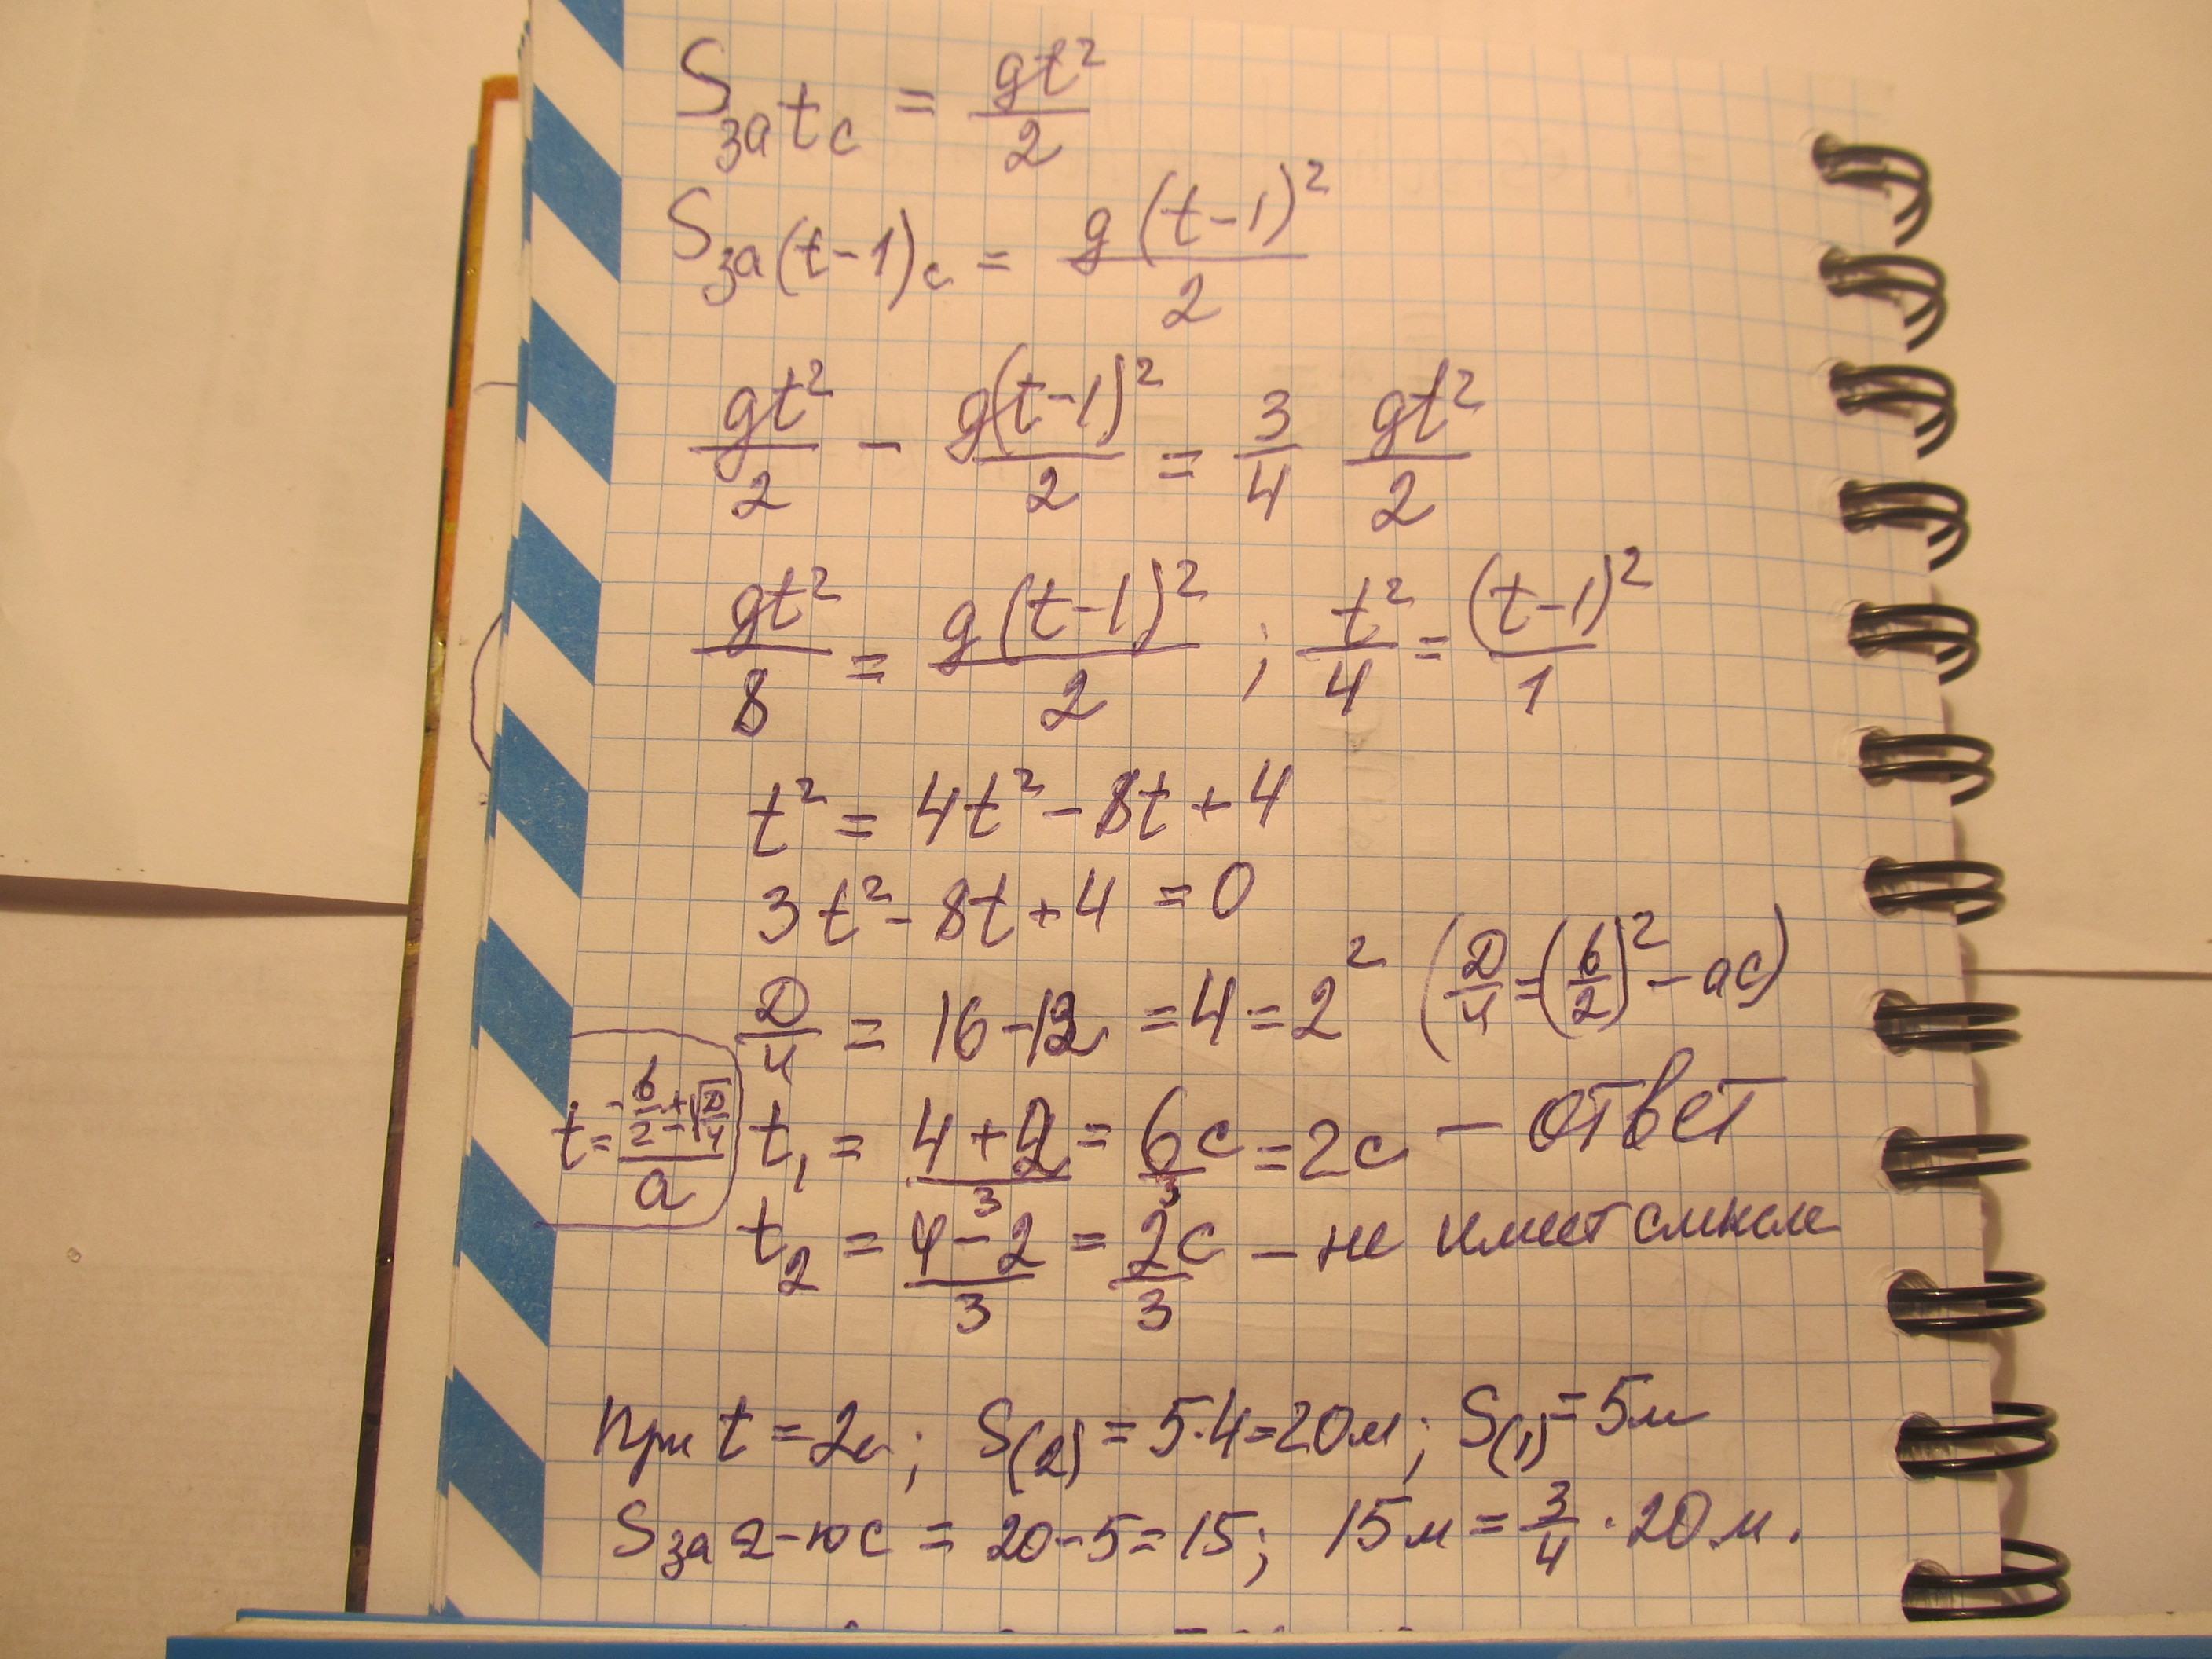 S за t с = gt²/2
S за (t-1) с = g(t-1)²/2
gt²/2 - g(t-1)²/2 = 3/4 gt²/2
gt²/8 = g(t-1)²/2 ; t²/4 = (t-1)²/1
t² = 4t² - 8t + 4
3t² - 8t + 4 = 0
D/4 = 16 - 12 = 4 = 2² (D/4 = (b/2)² - ac)
t = (-b/2 ± √(D/4))/a
t₁ = (4+2)/3 = 6/3 с = 2с - ответ
t₂ = (4-2)/3 = 2/3 с - не имеет смысла
При t = 2с; S(2) = 5·4 = 20м; S(1) = 5м
S за 2-ю с = 20 - 5 = 15; 15м = 3/4 · 20м.